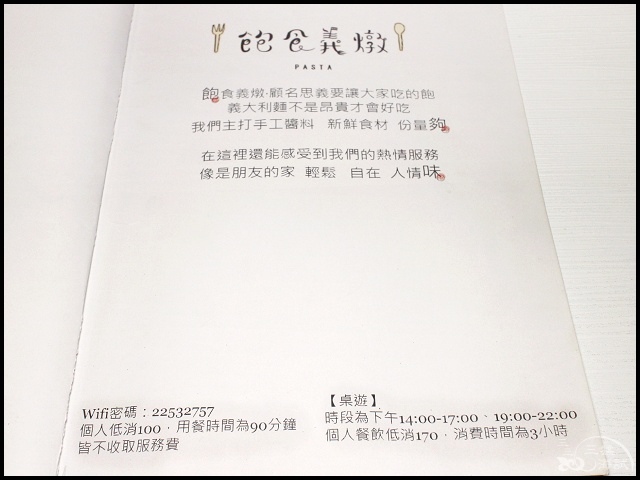 飽食義燉
PASTA
飽食義燉,顧名思義要讓大家吃的飽
義大利麵不是昂貴才會好吃
我們主打手工醬料 新鮮食材 份量夠
在這裡還能感受到我們的熱情服務
像是朋友的家 輕鬆 自在 人情味
Wifi密碼：22532757
個人低消100，用餐時間為90分鐘
皆不收取服務費
【桌遊】
時段為下午14:00-17:00、19:00-22:00
個人餐飲低消170，消費時間為3小時